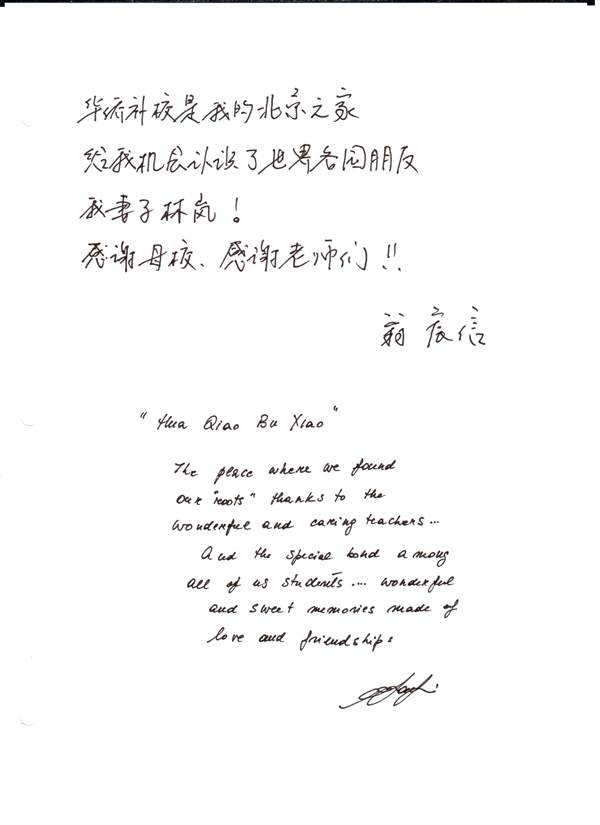 华侨补校是我的北京之家
给我机会认识了世界各国朋友
我妻子林岚！
感谢母校、感谢老师们!!
翁宸信
"Hua Qiao Bu Xiao"
The place where we found
our "roots" thanks to the
wonderful and caring teachers...
And the special bond among
all of us students.... wonderful
and sweet memories made of
love and friendships